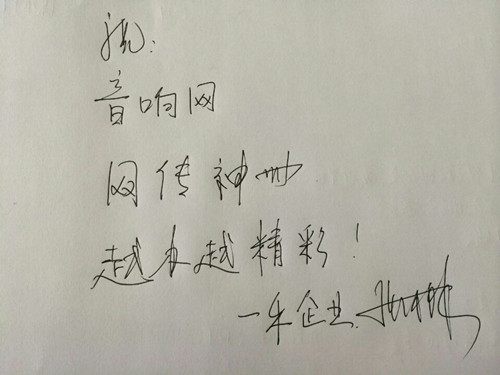 祝:
音响网
网传神州
越办越精彩!
一禾企业